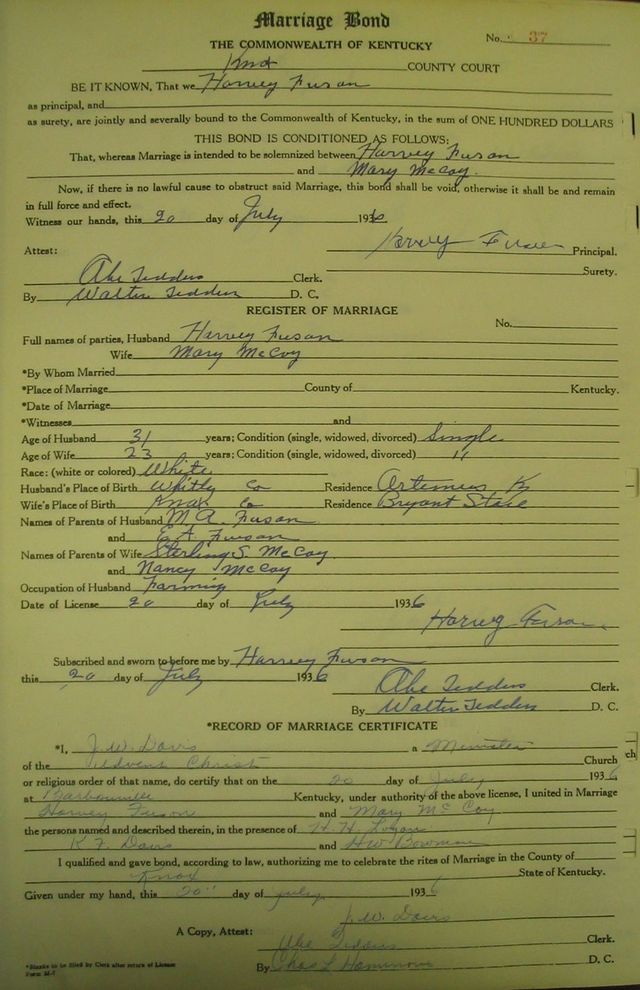 Marriage Bond
No. 37
THE COMMONWEALTH OF KENTUCKY
Knox COUNTY COURT
BE IT KNOWN, That we Harvey Fuson
as principal, and
as surety, are jointly and severally bound to the Commonwealth of Kentucky, in the sum of ONE HUNDRED DOLLARS
THIS BOND IS CONDITIONED AS FOLLOWS:
That, whereas Marriage is intended to be solemnized between Harvey Fuson
and Mary McCoy.
Now, if there is no lawful cause to obstruct said Marriage, this bond shall be void, otherwise it shall be and remain
in full force and effect.
Witness our hands, this 20 day of July 1936
Harvey Fuson Principal.
Attest:
Surety.
Abe Tedders Clerk.
By Walter Tedders D. C.
REGISTER OF MARRIAGE
No.
Full names of parties, Husband Harvey Fuson
Wife Mary McCoy
*By Whom Married
*Place of Marriage County of Kentucky.
*Date of Marriage
*Witnesses and
Age of Husband 31 years; Condition (single, widowed, divorced) Single
Age of Wife 23 years; Condition (single, widowed, divorced) "
Race: (white or colored) White
Husband's Place of Birth Whitly Co Residence Artemus Ky
Wife's Place of Birth Knox Co Residence Bryant Store
Names of Parents of Husband M. A. Fuson
and E. A. Fuson
Names of Parents of Wife Sterling S. McCoy
and Nancy McCoy
Occupation of Husband Farming
Date of License 20 day of July 1936
Harvey Fuson
Subscribed and sworn to before me by Harvey Fuson
this 20 day of July 1936
Abe Tedders Clerk.
By Walter Tedders D. C.
*RECORD OF MARRIAGE CERTIFICATE
*I, J. W. Davis a Minister
of the Advent Christ Church
or religious order of that name, do certify that on the 20 day of July 1936
at Barbourville Kentucky, under authority of the above license, I united in Marriage
Harvey Fuson and Mary McCoy
the persons named and described therein, in the presence of H. H. Logan
K. F. Davis and H W Bowman
I qualified and gave bond, according to law, authorizing me to celebrate the rites of Marriage in the County of
Knox State of Kentucky.
Given under my hand, this 20" day of July 1936
J. W. Davis
A Copy, Attest:
Abe Tedders Clerk.
By Chas L D. C.
*Blanks to be filled by Clerk after return of License
Form M-1
ch